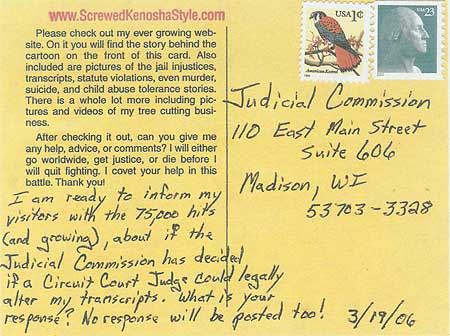 www.ScrewedKenoshaStyle.com
Please check out my ever growing web-
site. On it you will find the story behind the
cartoon on the front of this card. Also
included are pictures of the jail injustices,
transcripts, statute violations, even murder,
suicide, and child abuse tolerance stories.
There is a whole lot more including pic-
tures and videos of my tree cutting busi-
ness.
After checking it out, can you give me
any help, advice, or comments? I will either
go worldwide, get justice, or die before I
will quit fighting. I covet your help in this
battle. Thank you!
I am ready to inform my
visitors with the 75,000 hits
(and growing), about if the
Judicial Commission has decided
if a Circuit Court Judge could legally
alter my transcripts. What is your
response? No response will be posted too!
3/19/06
USA 1¢
American Kestrel
USA
23
Judicial Commission
110 East Main Street
Suite 606
Madison, WI
53703-3328